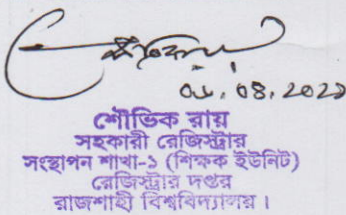 শৌভিক রায়
সহকারী রেজিস্ট্রার
সংস্থাপন শাখা-১ (শিক্ষক ইউনিট)
রেজিস্ট্রার দপ্তর
রাজশাহী বিশ্ববিদ্যালয়।